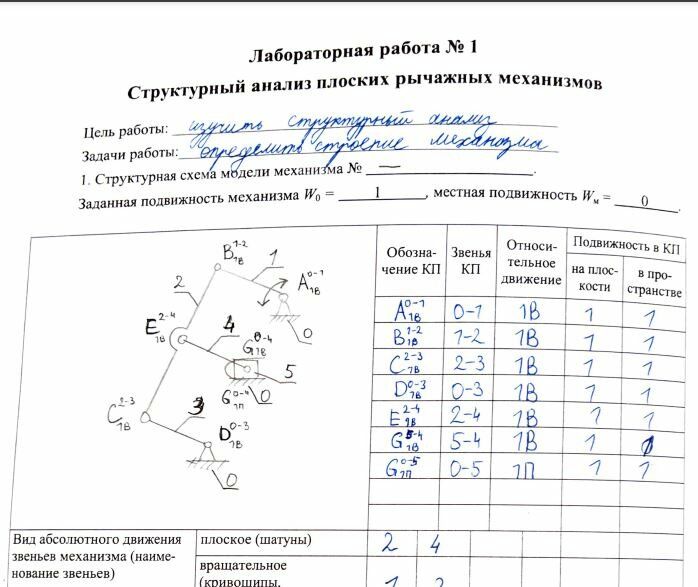 Лабораторная работа № 1
Структурный анализ плоских рычажных механизмов
Цель работы: изучить структурный анализ
Задачи работы: определить строение механизма
1. Структурная схема модели механизма № —.
Заданная подвижность механизма W₀ = 1, местная подвижность Wм = 0.
B 1-2 1В
1
A 0-1 1В
2
0
E 2-4 1В
4
G 0-4 1В
5
G 0-4 1П
0
C 2-3 1В
3
D 0-3 1В
0
Обозна-
чение КП
Звенья
КП
Относи-
тельное
движение
Подвижность в КП
на плос-
кости
в про-
странстве
A 0-1 1В 0-1 1В 1 1
B 1-2 1В 1-2 1В 1 1
C 2-3 1В 2-3 1В 1 1
D 0-3 1В 0-3 1В 1 1
E 2-4 1В 2-4 1В 1 1
G 5-4 1В 5-4 1В 1
G 0-5 1П 0-5 1П 1 1
Вид абсолютного движения
звеньев механизма (наиме-
нование звеньев)
плоское (шатуны) 2 4
вращательное
(кривошипы,